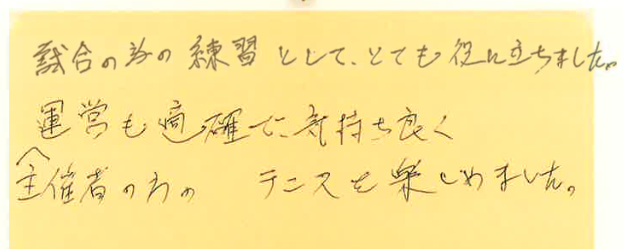 試合の為の練習として、とても役に立ちました。
運営も適確で、気持ち良く
主催者の方の テニスを楽しめました。